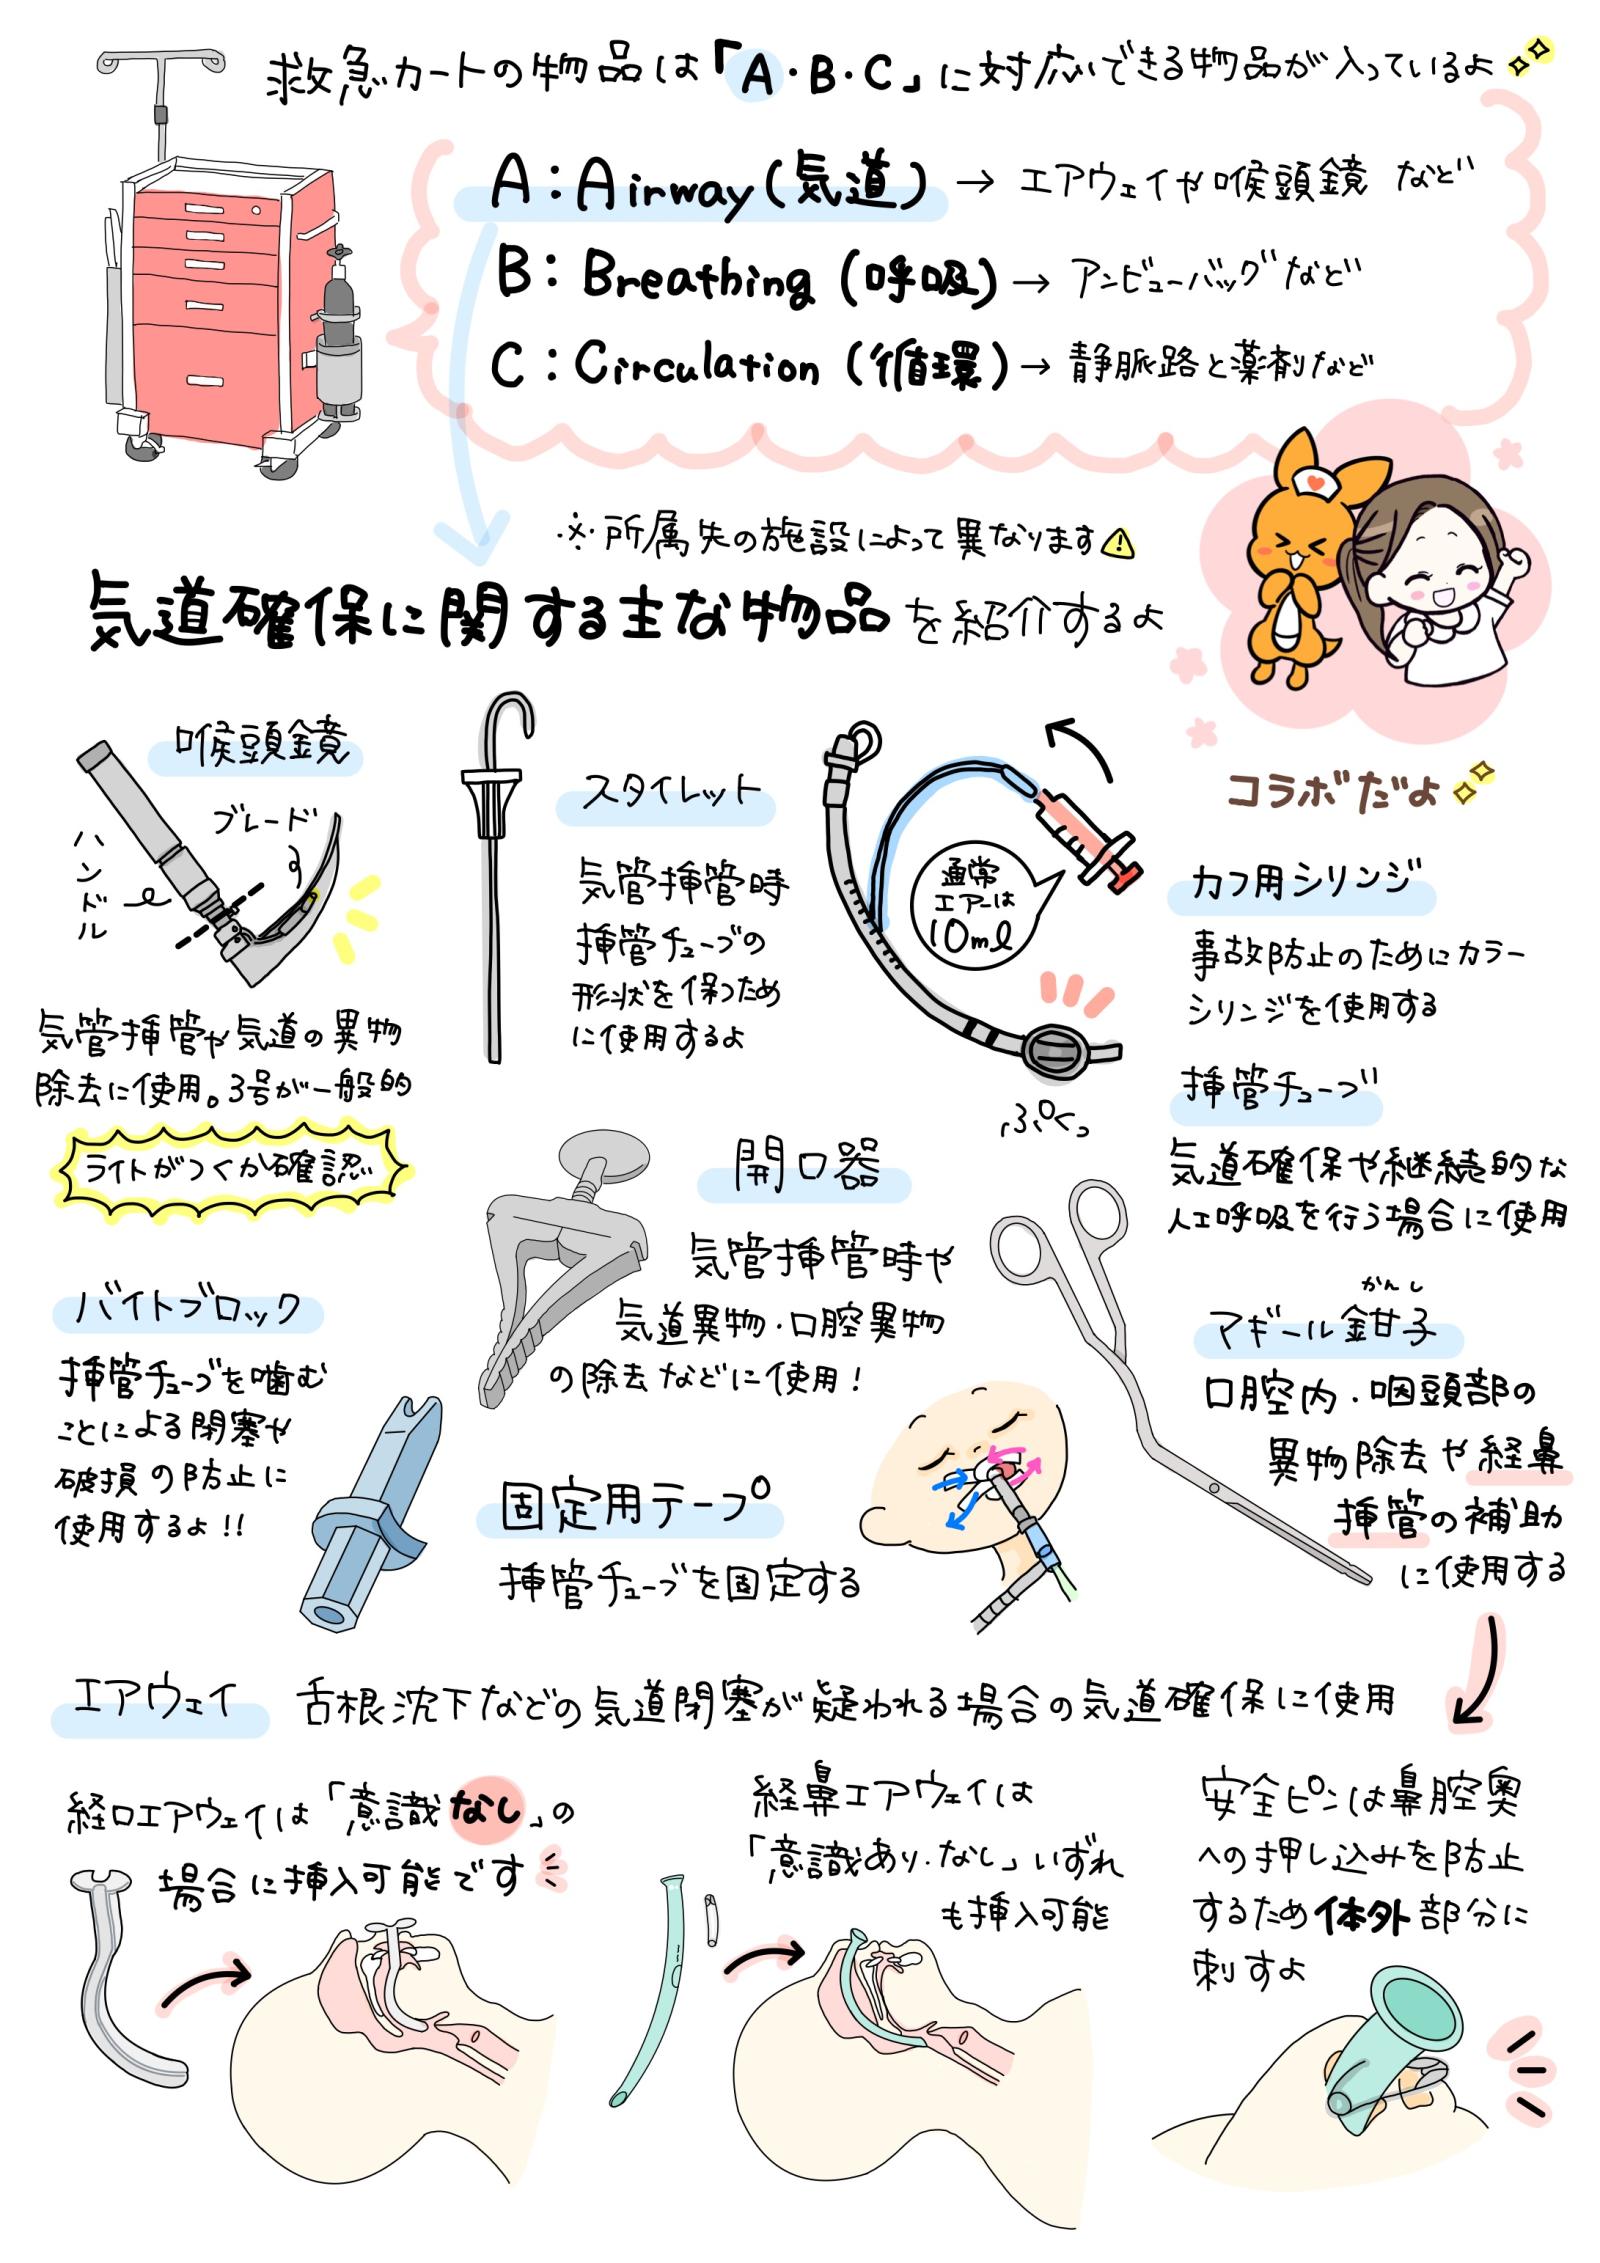 救急カートの物品は「A・B・C」に対応できる物品が入っているよ
A：Airway（気道）→ エアウェイや喉頭鏡 など
B：Breathing（呼吸）→ アンビューバッグなど
C：Circulation（循環）→ 静脈路と薬剤など
※所属先の施設によって異なります
気道確保に関する主な物品を紹介するよ
コラボだよ
喉頭鏡
ブレード
ハンドル
気管挿管や気道の異物
除去に使用。3号が一般的
ライトがつくか確認
スタイレット
気管挿管時
挿管チューブの
形状を保つため
に使用するよ
通常
エアーは
10ml
ぷくっ
カフ用シリンジ
事故防止のためにカラー
シリンジを使用する
挿管チューブ
気道確保や継続的な
人工呼吸を行う場合に使用
開口器
気管挿管時や
気道異物・口腔異物
の除去などに使用！
かんし
マギール鉗子
口腔内・咽頭部の
異物除去や経鼻
挿管の補助
に使用する
バイトブロック
挿管チューブを噛む
ことによる閉塞や
破損の防止に
使用するよ!!
固定用テープ
挿管チューブを固定する
エアウェイ 舌根沈下などの気道閉塞が疑われる場合の気道確保に使用
経口エアウェイは「意識なし」の
場合に挿入可能です
経鼻エアウェイは
「意識あり・なし」いずれ
も挿入可能
安全ピンは鼻腔奥
への押し込みを防止
するため体外部分に
刺すよ